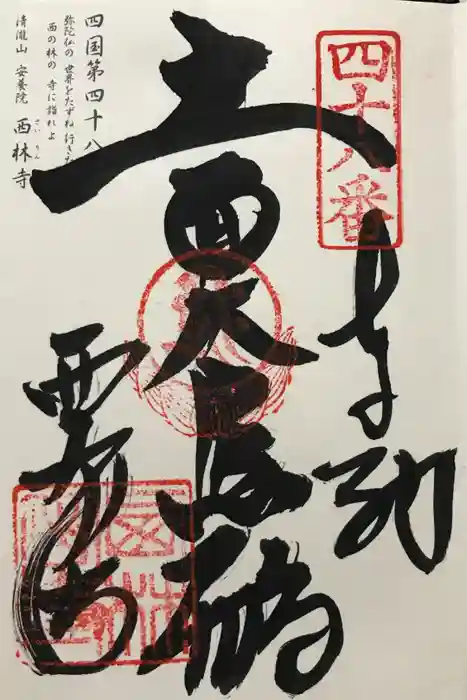 四十八番
奉納
十一面大悲殿
西林寺
四国第四十八
弥陀仏の 世界をたずね 行きた
西の林の 寺に詣れよ
清瀧山 安養院 西林寺
さい りん